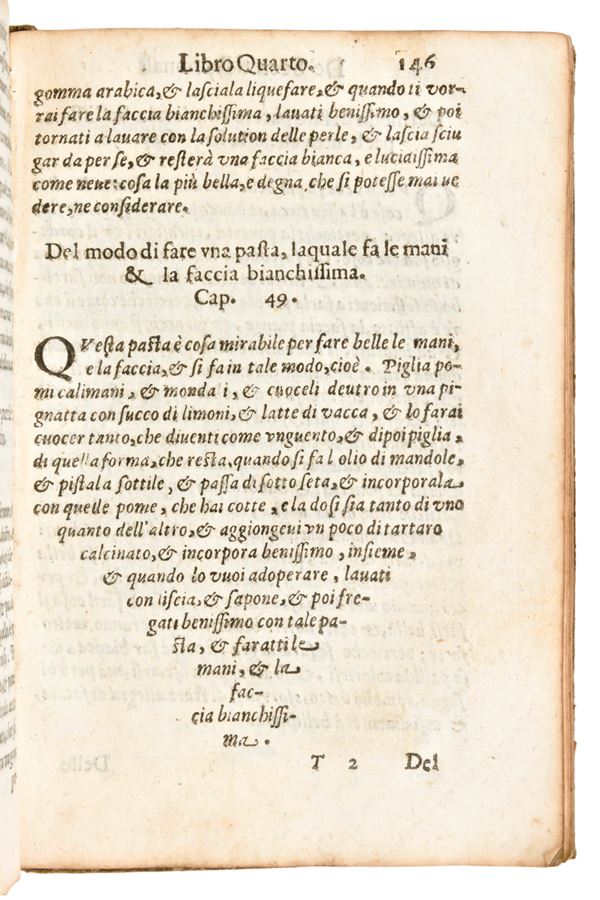 Libro Quarto. 146
gomma arabica, & lasciala liquefare, & quando ti vor-
rai fare la faccia bianchissima, lauati benissimo, & poi
tornati a lauare con la solution delle perle, & lascia sciu
gar da per se, & resterà vna faccia bianca, e lucidissima
come neue: cosa la più bella, e degna, che si potesse mai ue
dere, ne considerare.
Del modo di fare vna pasta, laquale fa le mani
& la faccia bianchissima.
Cap. 49.
QVesta pasta è cosa mirabile per fare belle le mani,
e la faccia, & si fa in tale modo, cioè. Piglia po-
mi calimani, & monda i, & cuoceli deutro in vna pi-
gnatta con succo di limoni, & latte di vacca, & lo farai
cuocer tanto, che diuenti come vnguento, & dipoi piglia,
di quella forma, che resta, quando si fa l olio di mandole,
& pistala sottile, & passa di sotto seta, & incorporala
con quelle pome, che hai cotte, e la dosi sia tanto di vno
quanto dell'altro, & aggiongeui vn poco di tartaro
calcinato, & incorpora benissimo, insieme,
& quando lo vuoi adoperare, lauati
con liscia, & sapone, & poi fre-
gati benissimo con tale pa-
sta, & faratti le
mani, & la
fac-
cia bianchissi-
ma.
T 2 Del